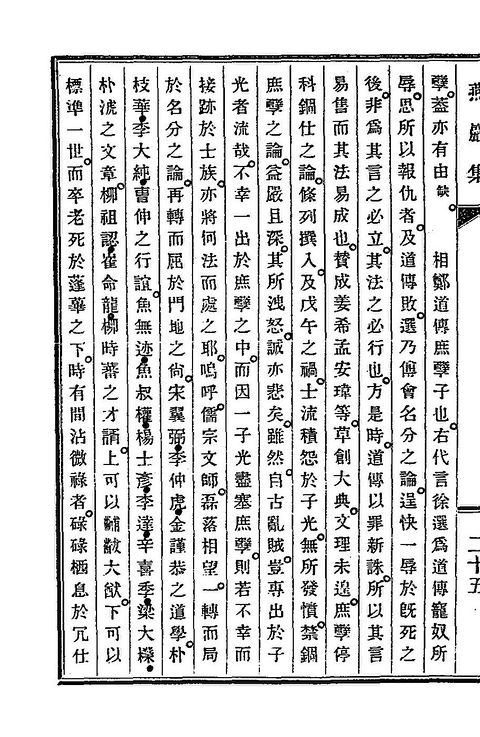 燕巖集 二十五
孼葢亦有由缺 相鄭道傳庶孼子也右代言徐選爲道傳寵奴所
辱思所以報仇者及道傳敗選乃傅會名分之論逞快一辱於旣死之
後非爲其言之必立其法之必行也方是時道傳以罪新誅所以其言
易售而其法易成也贊成姜希孟安瑋等草創大典文理未遑庶孼停
科錮仕之論條列撰入及戊午之禍士流積怨於子光無所發憤禁錮
庶孼之論益嚴且深其所洩怒誠亦悲矣雖然自古亂賊豈專出於子
光者流哉不幸一出於庶孼之中而因一子光盡塞庶孼則若不幸而
接跡於士族亦將何法而處之耶嗚呼儒宗文師磊落相望一轉而局
於名分之論再轉而屈於門地之尙宋翼弼李仲虎金謹恭之道學朴
枝華李大純曹伸之行誼魚無迹魚叔權楊士彥李達辛喜季梁大樸
朴淲之文章柳祖認崔命龍柳時蕃之才諝上可以黼黻大猷下可以
標準一世而卒老死於蓬蓽之下時有間沾微祿者碌碌栖息於冗仕